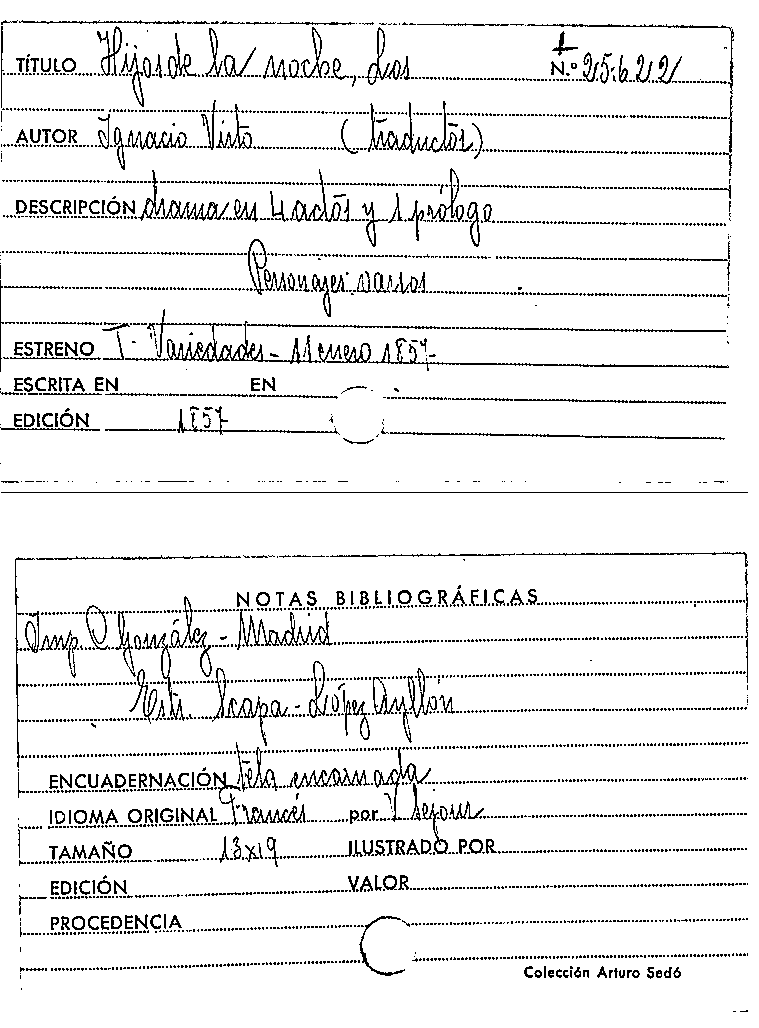 TÍTULO Hijos de la noche, Los N.º 25.622
AUTOR Ignacio Virto (traductor)
DESCRIPCIÓN drama en 4 actos y 1 prólogo
Personajes: varios
ESTRENO T. Variedades - 11 enero 1857
ESCRITA EN EN
EDICIÓN 1857
NOTAS BIBLIOGRÁFICAS
Imp. C. González - Madrid
Estr. Scapa - López Ayllón
ENCUADERNACIÓN tela encarnada
IDIOMA ORIGINAL Francés por V Sejour
TAMAÑO 13x19 ILUSTRADO POR
EDICIÓN VALOR
PROCEDENCIA
Colección Arturo Sedó